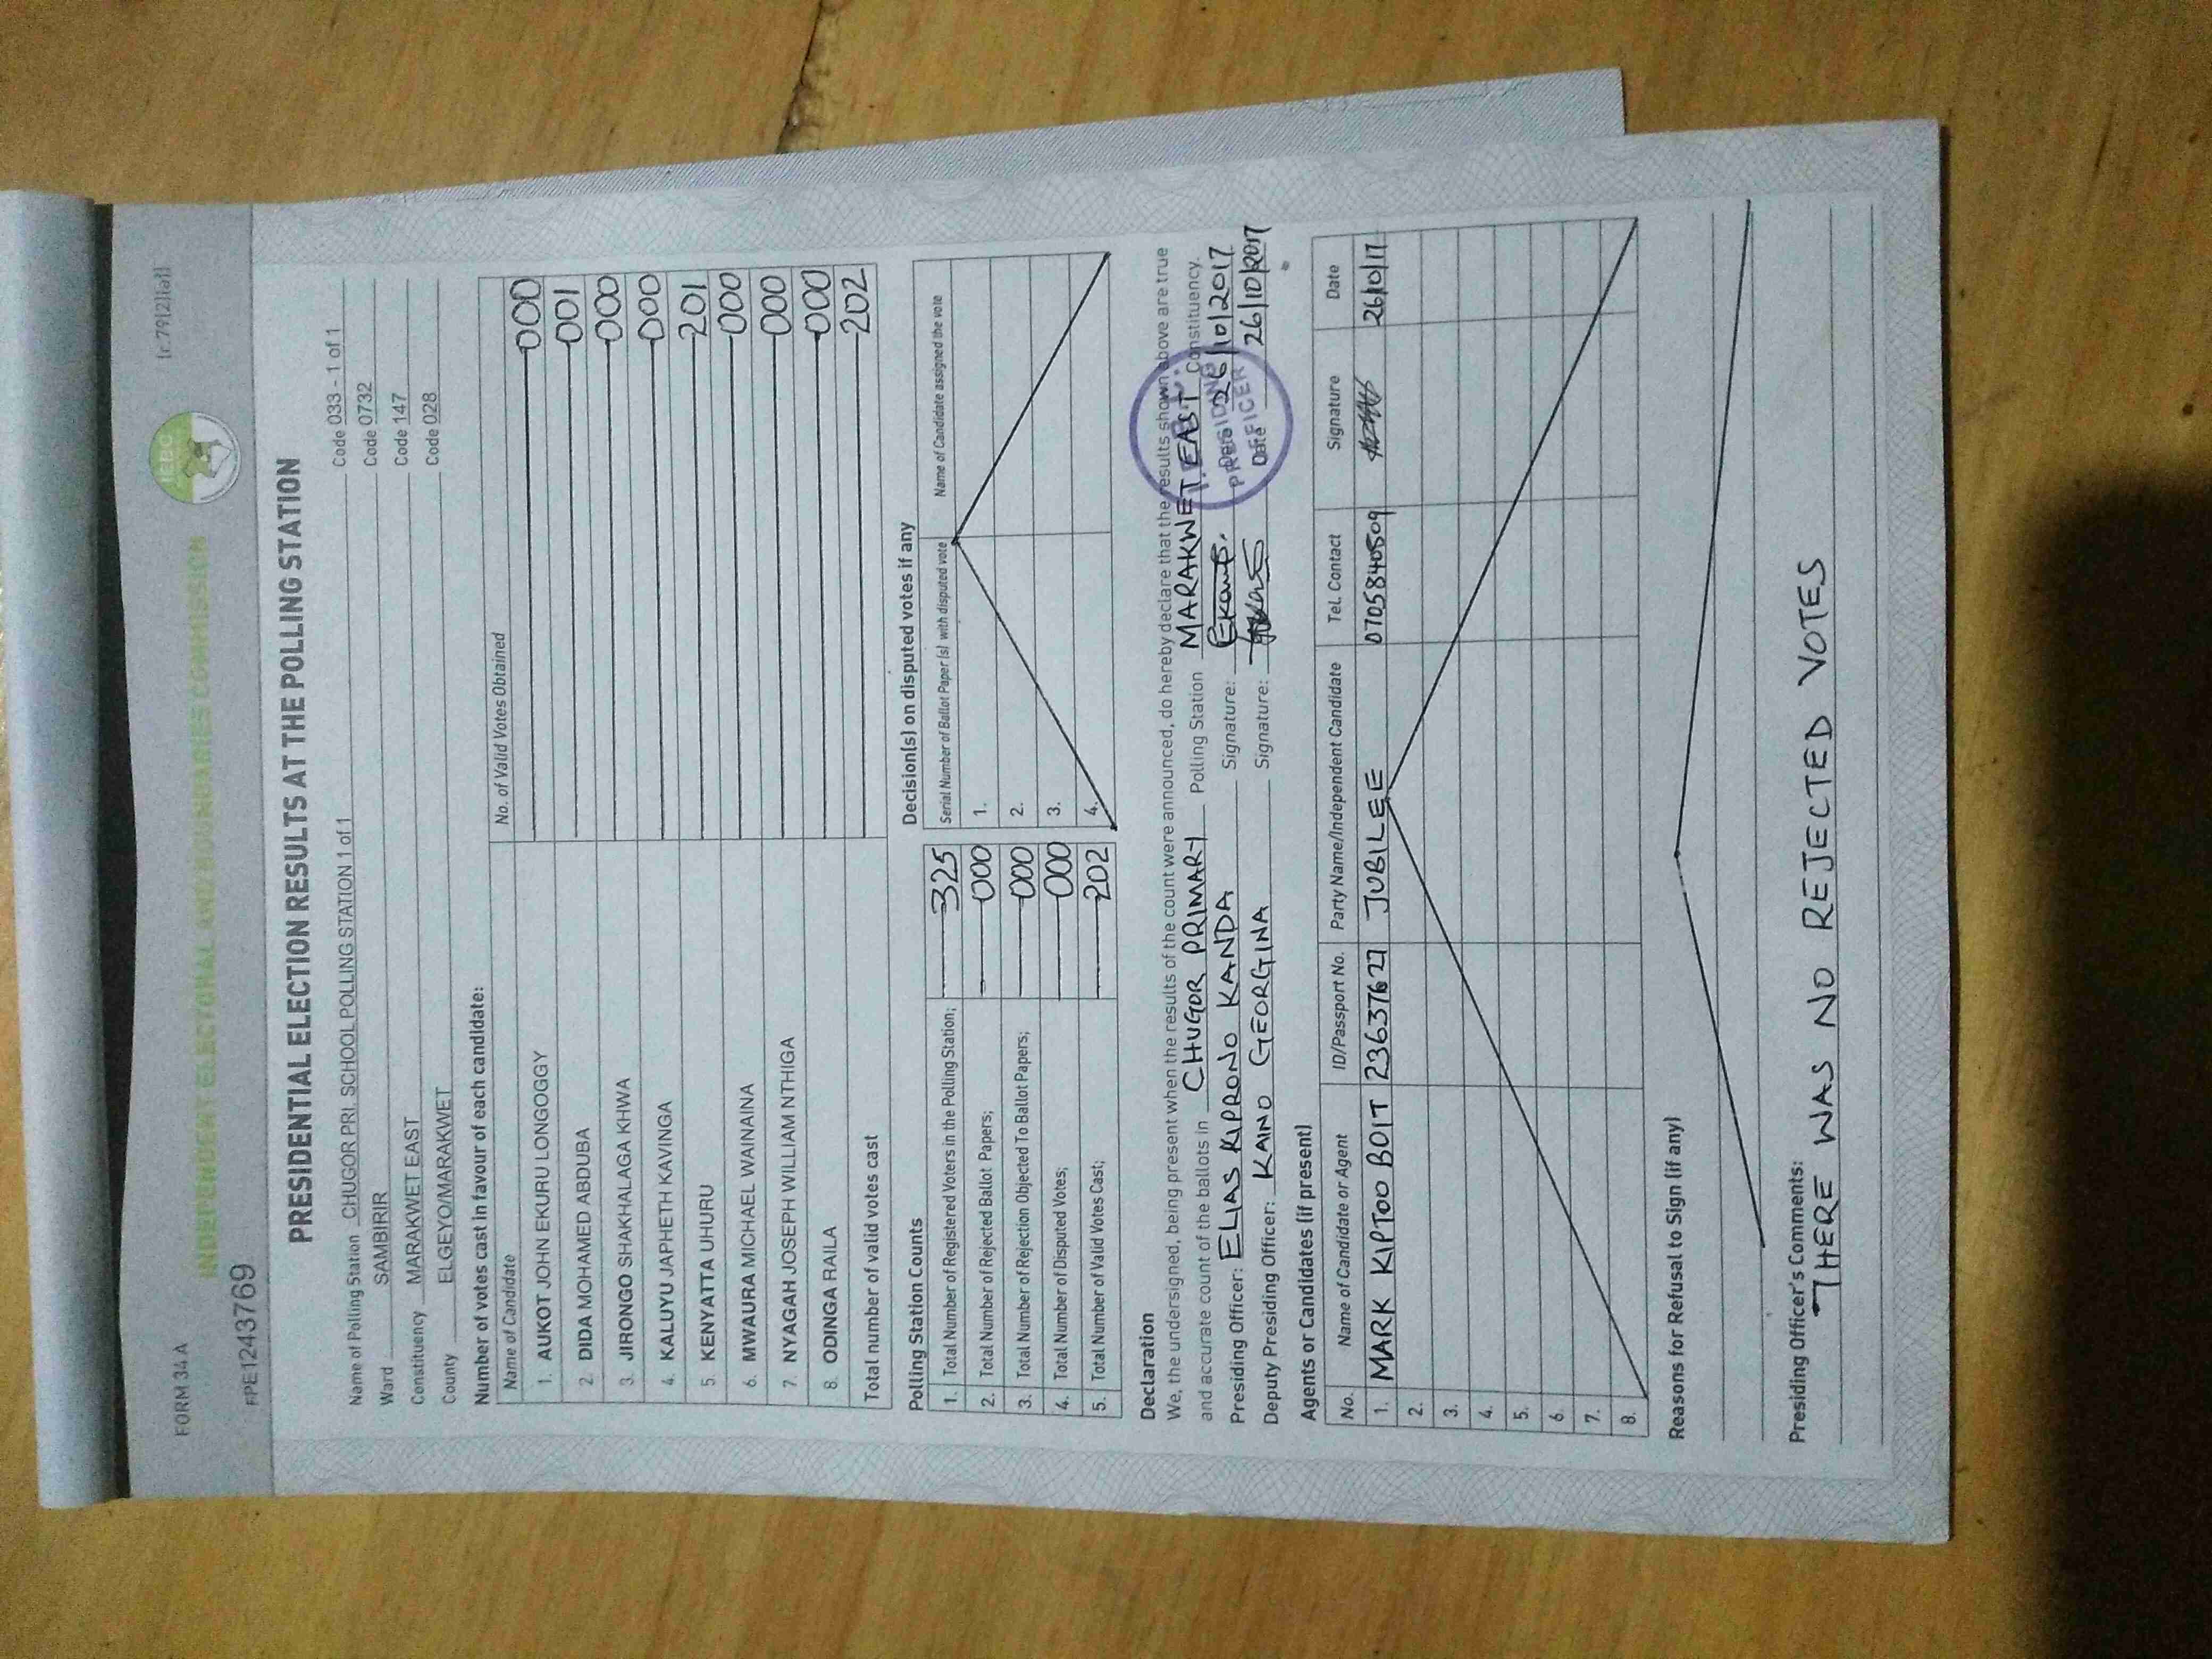 FORM 34 A
(r.79(2)(a))
INDEPENDENT ELECTORAL AND BOUNDARIES COMMISSION
IEBC
FPE1243769
PRESIDENTIAL ELECTION RESULTS AT THE POLLING STATION
Name of Polling Station CHUGOR PRI. SCHOOL POLLING STATION 1 of 1 Code 033 - 1 of 1
Ward SAMBIRIR Code 0732
Constituency MARAKWET EAST Code 147
County ELGEYO/MARAKWET Code 028
Number of votes cast in favour of each candidate:
Name of Candidate No. of Valid Votes Obtained
1. AUKOT JOHN EKURU LONGOGGY 000
2. DIDA MOHAMED ABDUBA 001
3. JIRONGO SHAKHALAGA KHWA 000
4. KALUYU JAPHETH KAVINGA 000
5. KENYATTA UHURU 201
6. MWAURA MICHAEL WAINAINA 000
7. NYAGAH JOSEPH WILLIAM NTHIGA 000
8. ODINGA RAILA 000
Total number of valid votes cast 202
Polling Station Counts
1. Total Number of Registered Voters in the Polling Station; 325
2. Total Number of Rejected Ballot Papers; 000
3. Total Number of Rejection Objected To Ballot Papers; 000
4. Total Number of Disputed Votes; 000
5. Total Number of Valid Votes Cast; 202
Decision(s) on disputed votes if any
Serial Number of Ballot Paper (s) with disputed vote Name of Candidate assigned the vote
1.
2.
3.
4.
Declaration
We, the undersigned, being present when the results of the count were announced, do hereby declare that the results shown above are true
and accurate count of the ballots in CHUGOR PRIMARY Polling Station MARAKWET EAST Constituency.
Presiding Officer: ELIAS KIPRONO KANDA Signature: Date 26/10/2017
Deputy Presiding Officer: KAINO GEORGINA Signature: Date 26/10/2017
PRESIDING
OFFICER
Agents or Candidates (if present)
No. Name of Candidate or Agent ID/Passport No. Party Name/Independent Candidate Tel. Contact Signature Date
1. MARK KIPTOO BOIT 23637627 JUBILEE 0705840509 26/10/17
2.
3.
4.
5.
6.
7.
8.
Reasons for Refusal to Sign (if any)
Presiding Officer's Comments:
THERE WAS NO REJECTED VOTES